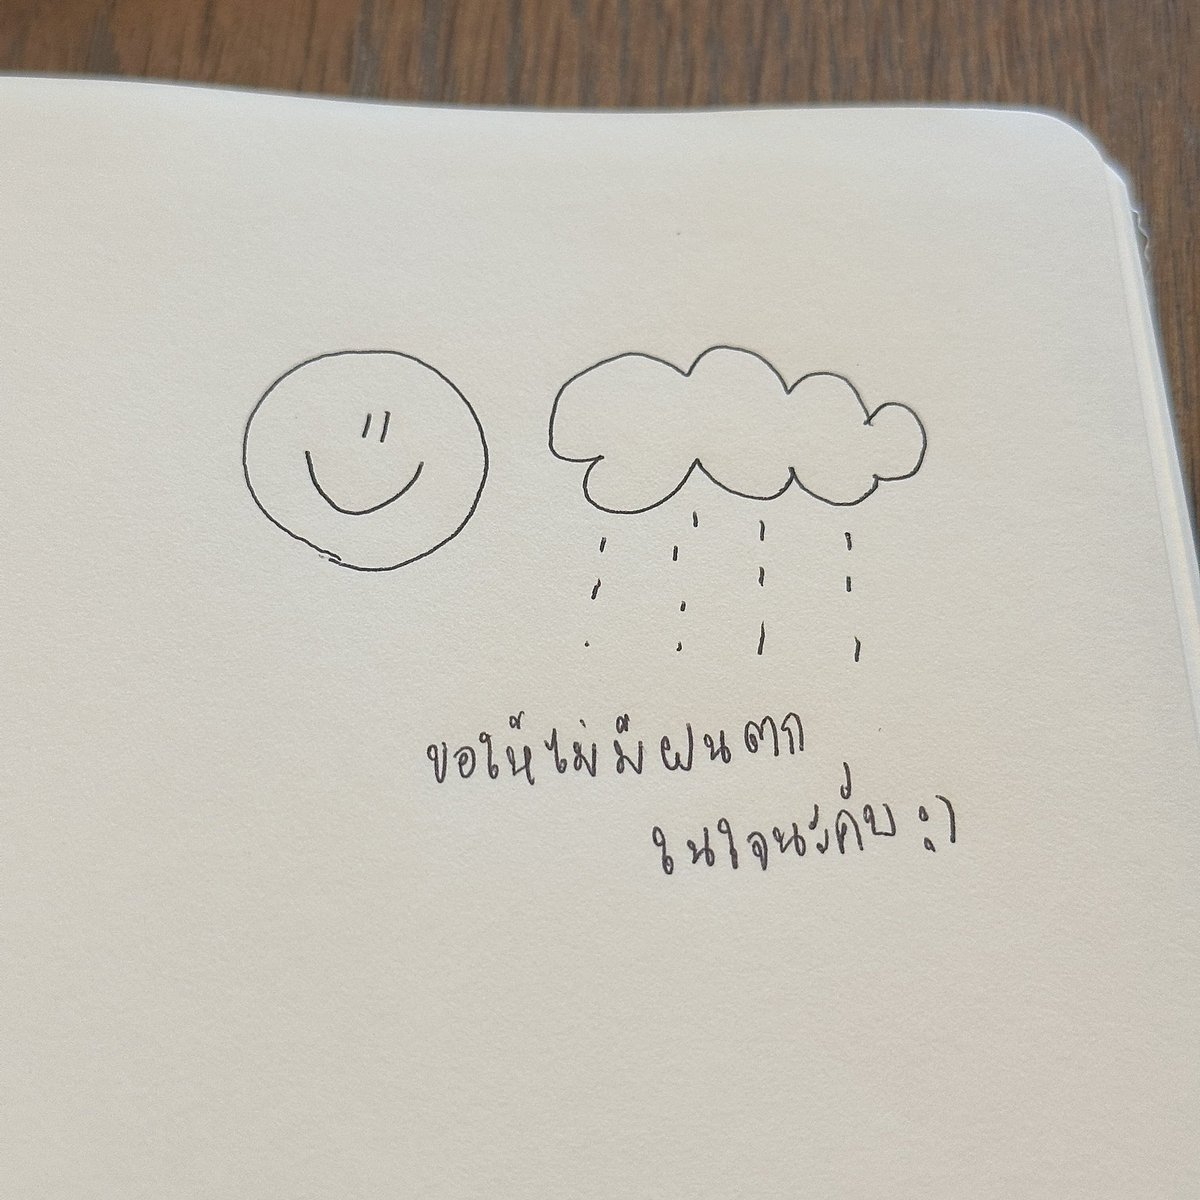 ขอให้ไม่มีฝนตก
ในใจนะค้บ :)